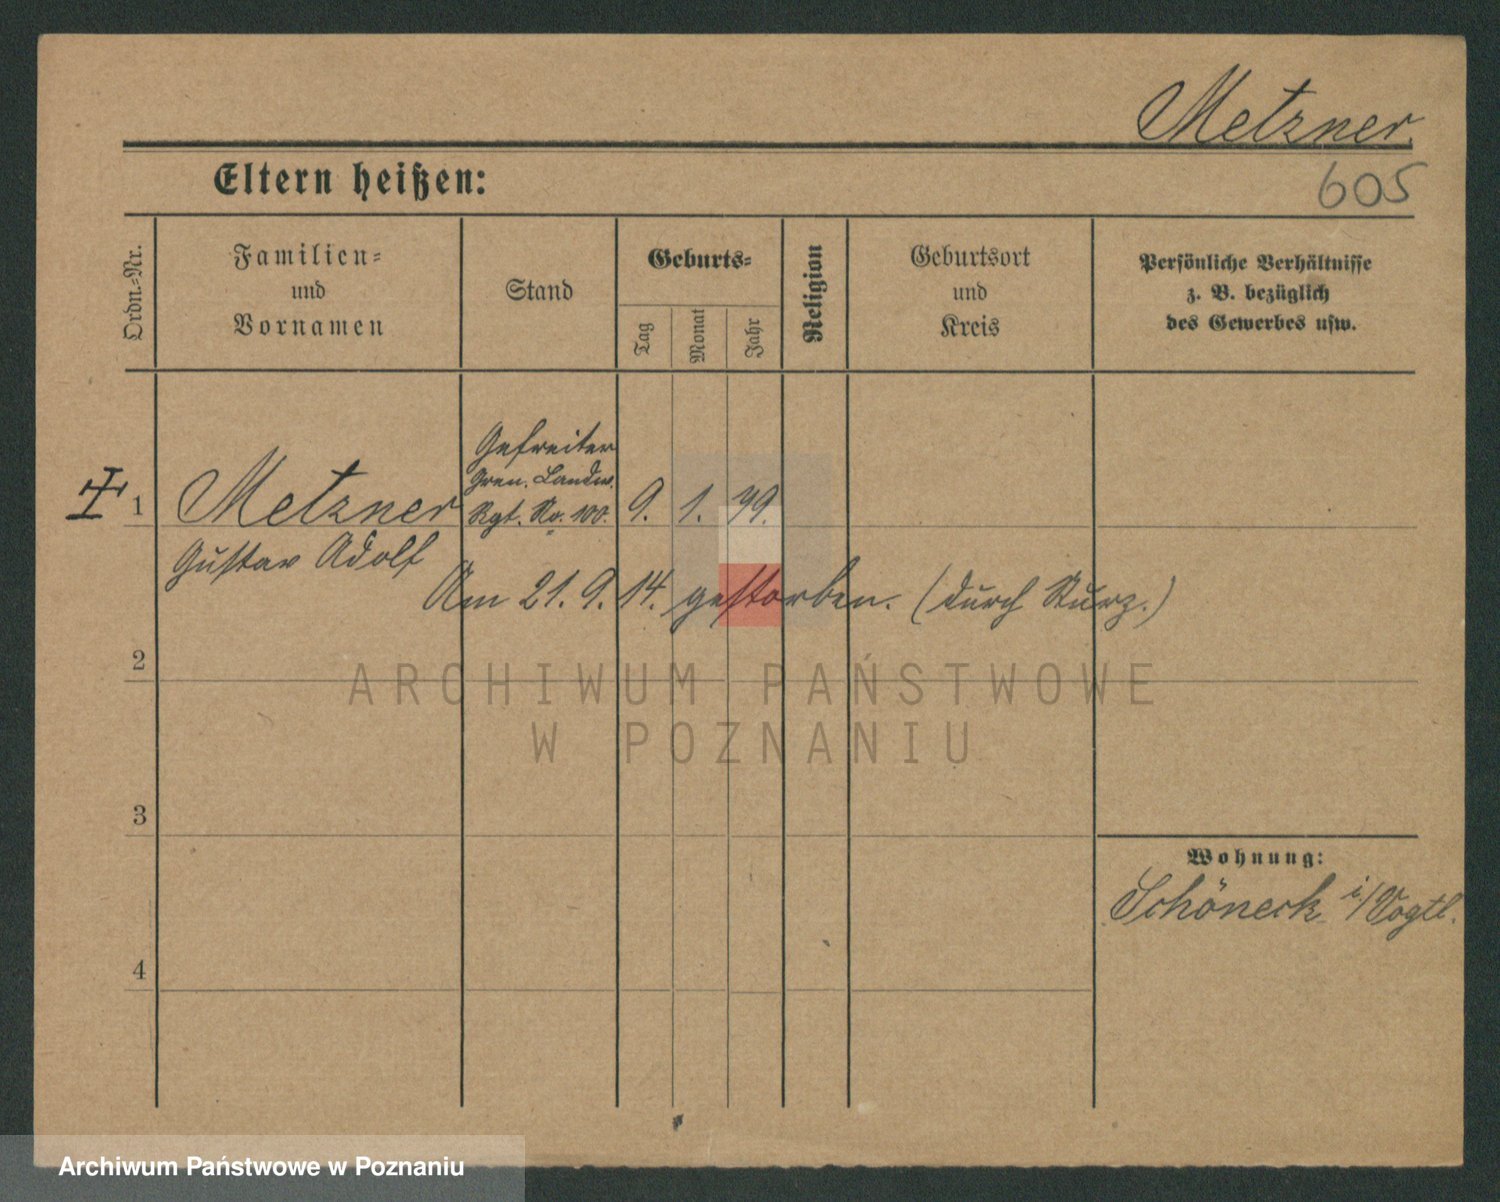 Metzner.
Eltern heißen:
605
Ordn.-Nr.
Familien-
und
Vornamen
Stand
Geburts-
Tag
Monat
Jahr
Religion
Geburtsort
und
Kreis
Persönliche Verhältnisse
z. B. bezüglich
des Gewerbes usw.
Gefreiter
Gren. Landw.
Rgt. No. 100.
1 Metzner 9. 1. 79.
Gustav Adolf
Am 21. 9. 14. gestorben. (durch Sturz.)
2
ARCHIWUM PAŃSTWOWE
W POZNANIU
3
Wohnung:
Schöneck i/Vogtl.
4
Archiwum Państwowe w Poznaniu